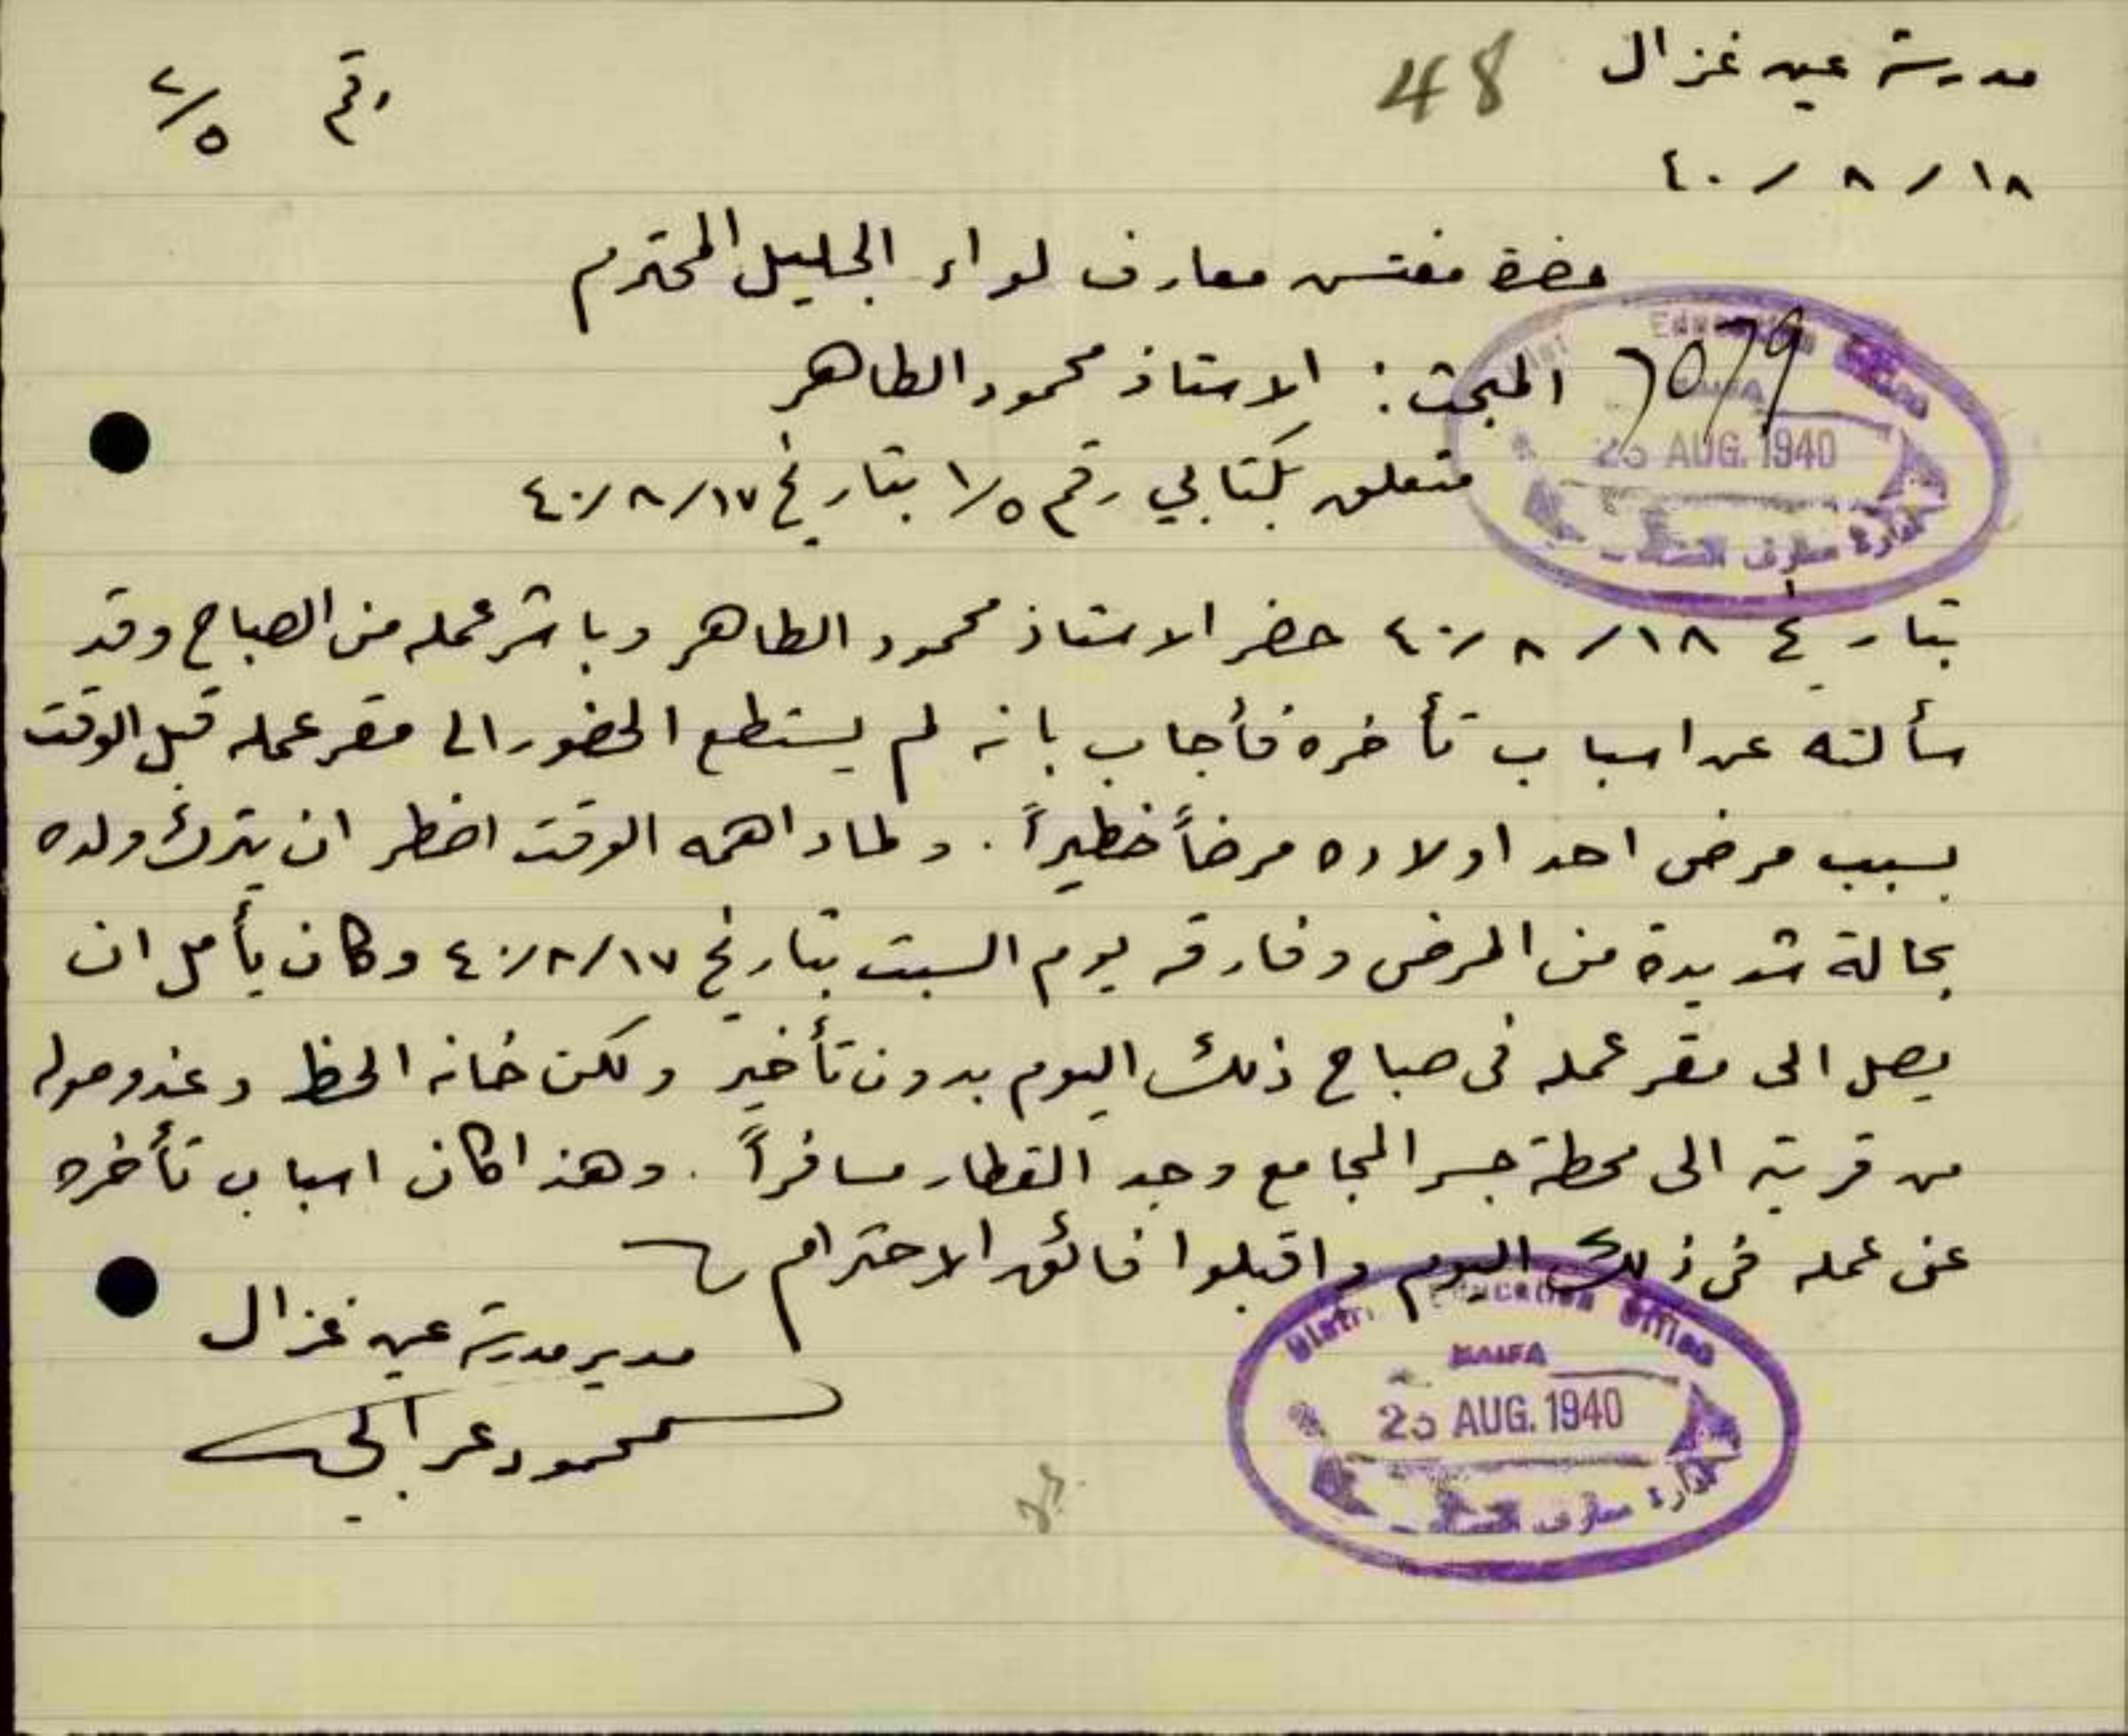 مدرسة عين غزال 48
رقم ٥/٢
١٨ / ٨ / ٤٠
حضرة مفتش معارف لواء الجليل المحترم
المبحث : الاستاذ محمود الطاهر
متعلق بكتابي رقم ١/٥ بتاريخ ١٧/ ٨/ ٤٠
Education Office
25 AUG. 1940
ادارة معارف
بتاريخ ١٨/ ٨/ ٤٠ حضر الاستاذ محمود الطاهر وباشر عمله من الصباح وقد
سألته عن اسباب تأخره فأجاب بانه لم يستطع الحضور الى مقر عمله قبل الوقت
بسبب مرض احد اولاده مرضاً خطيراً . ولما داهمه الوقت اضطر ان يترك ولده
بحالة شديدة من المرض وفارقه يوم السبت بتاريخ ١٧/ ٨/ ٤٠ وكان يأمل ان
يصل الى مقر عمله في صباح ذلك اليوم بدون تأخير ولكن خانه الحظ وعند وصوله
من قريته الى محطة جسر المجامع وجد القطار مسافراً . وهذا كان اسباب تأخره
عن عمله في ذلك اليوم واقبلوا فائق الاحترام
مدير مدرسة عين غزال
محمود عرابي
District Education Office
HAIFA
25 AUG. 1940
ادارة معارف